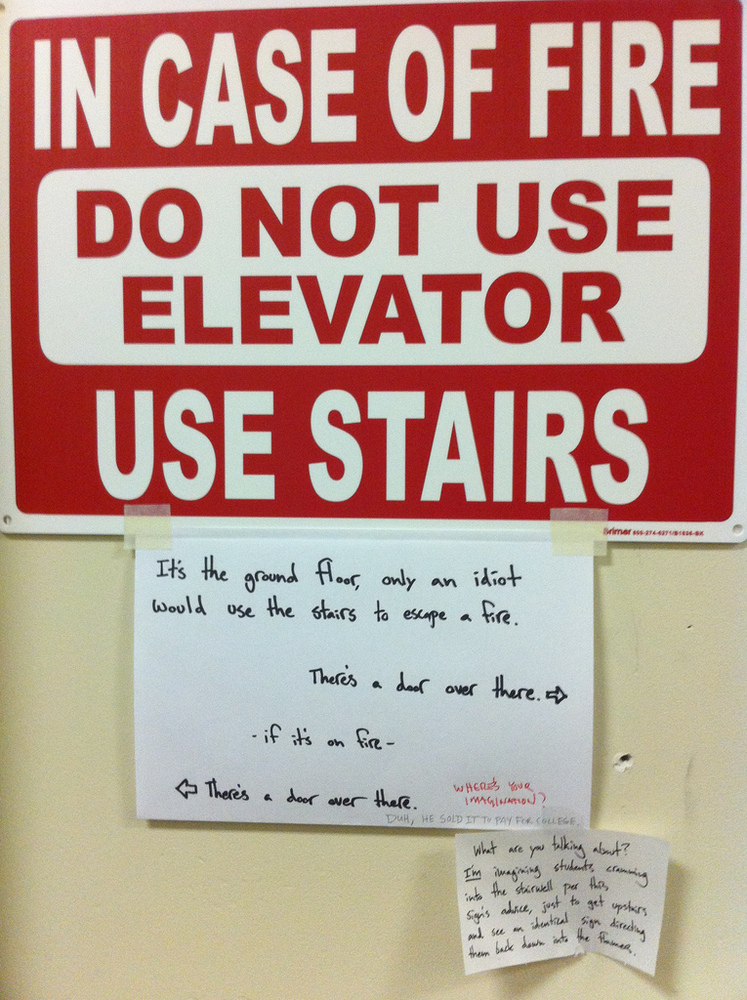 IN CASE OF FIRE
DO NOT USE
ELEVATOR
USE STAIRS
It's the ground floor, only an idiot
would use the stairs to escape a fire.
There's a door over there. ⇨
- if it's on fire -
⇦ There's a door over there.
WHERE'S YOUR
IMAGINATION?
DUH, HE SOLD IT TO PAY FOR COLLEGE.
What are you talking about?
I'm imagining students cramming
into the stairwell per this
sign's advice, just to get upstairs
and see an identical sign directing
them back down into the flames.